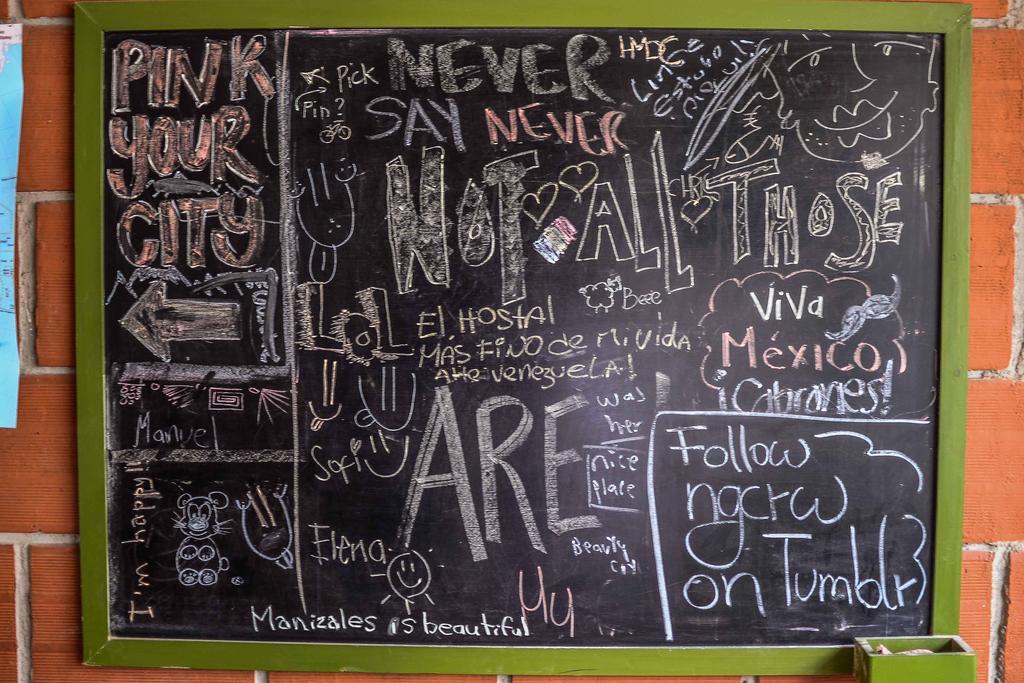 PINK
YOUR
CITY
Pick
Pin?
NEVER
SAY NEVER
HMDC
NOT ALL THOSE
LoL
El HOSTAl
MÁS FINO de Mi vida
Atte: venezuELA!
Beee
ViVa
México
¡Cabrones!
ARE
was
her
nice
place
Beauty
Manuel
I'm happy!!
Sofi
Elena
Manizales is beautiful
My
Follow
ngcrw
on Tumblr